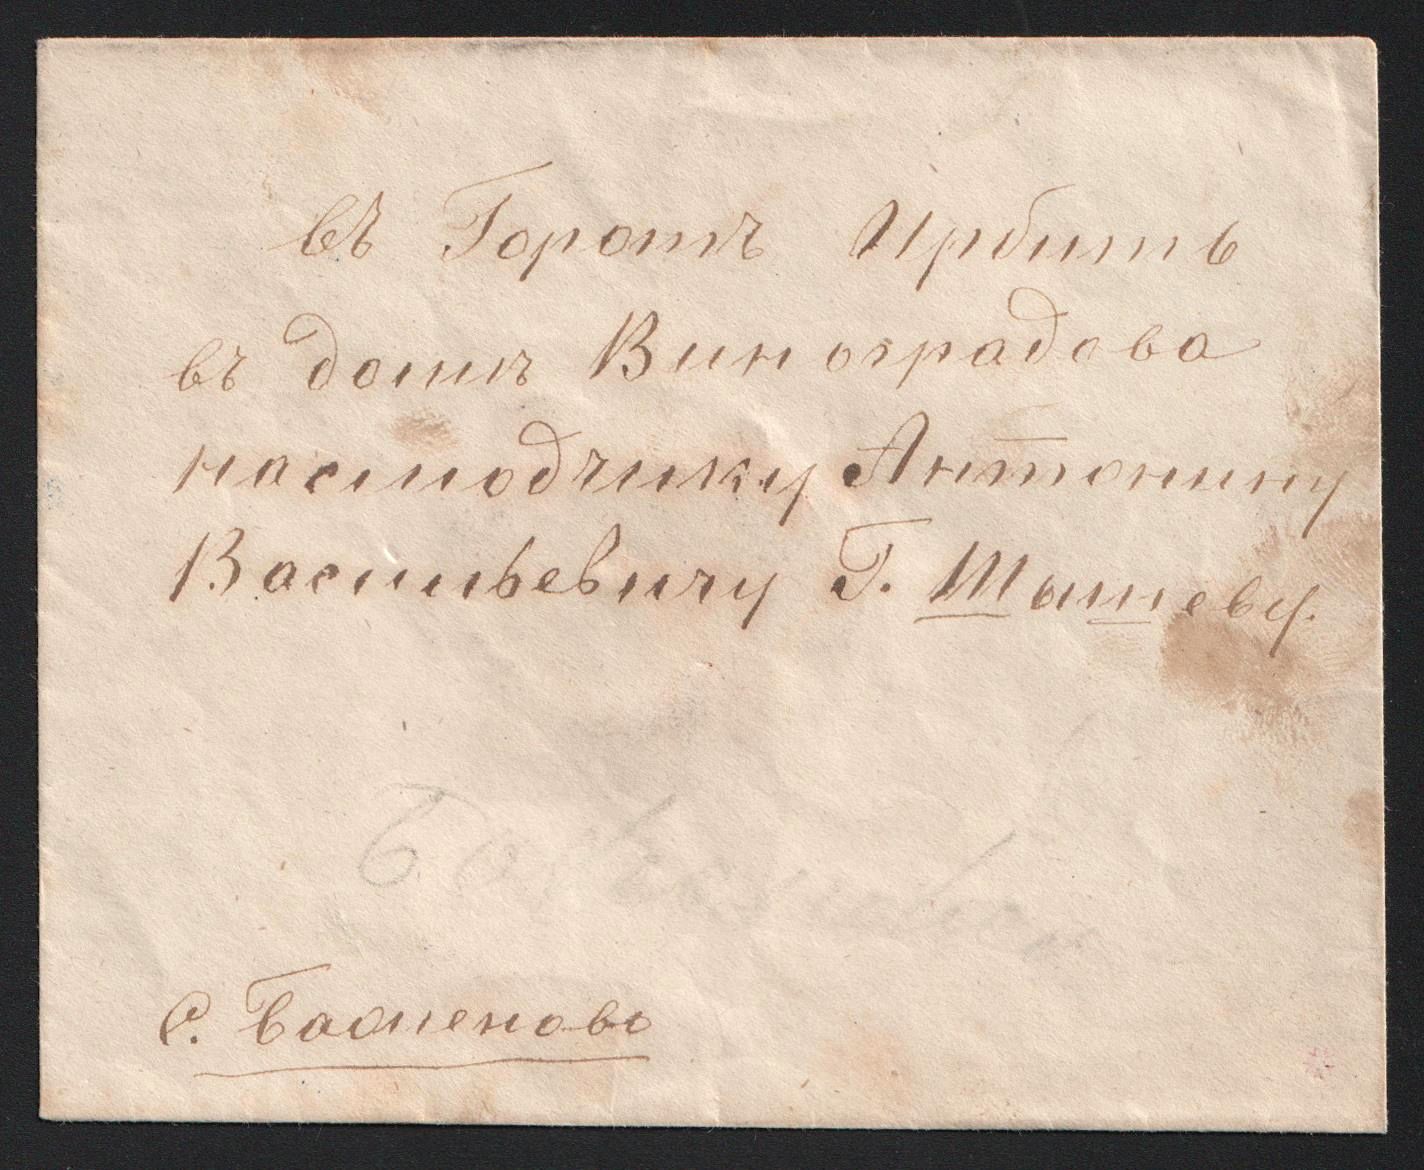 въ Горотъ Ирбитъ
въ домъ Виноградова
насттодчику Антонину
Васильевичу Г. Шышеву.
с. Баженово